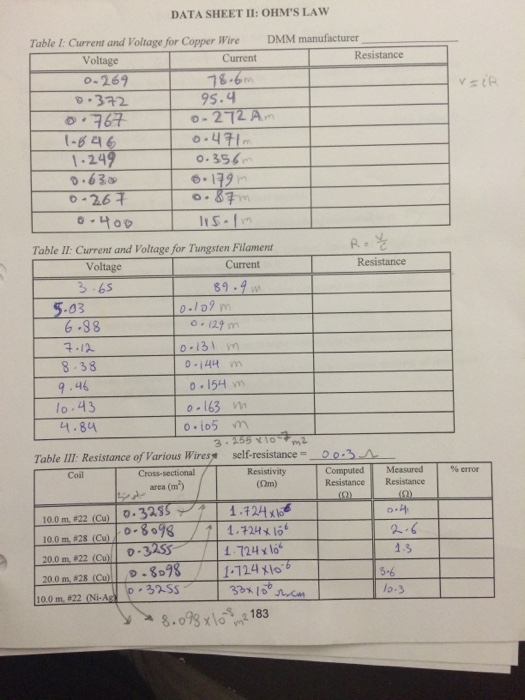 DATA SHEET II: OHM'S LAW
Table I: Current and Voltage for Copper Wire DMM manufacturer
Voltage Current Resistance
0.269 78.6m
0.372 95.4
0.767 0.272 Am
1.646 0.471m
1.249 0.356m
0.630 0.179m
0.267 0.87m
0.400 115.1m
V = iR
R = V/i
Table II: Current and Voltage for Tungsten Filament
Voltage Current Resistance
3.65 89.9 m
5.03 0.109 m
6.88 0.129 m
7.12 0.131 m
8.38 0.144 m
9.46 0.154 m
10.43 0.163 m
4.84 0.105 m
3.255 x10⁻⁷ m²
Table III: Resistance of Various Wires self-resistance = 00.3 Ω
Coil Cross-sectional area (m²) Resistivity (Ωm) Computed Resistance (Ω) Measured Resistance (Ω) % error
10.0 m, #22 (Cu) 0.3255 1.724x10⁻⁶ 0.4
10.0 m, #28 (Cu) 0.8098 1.724x10⁻⁶ 2.6
20.0 m, #22 (Cu) 0.3255 1.724x10⁻⁶ 1.3
20.0 m, #28 (Cu) 0.8098 1.724x10⁻⁶ 3.6
10.0 m, #22 (Ni-Ag) 0.3255 33x10⁻⁶ Ω.cm 10.3
8.098 x10⁻⁸ m²
183